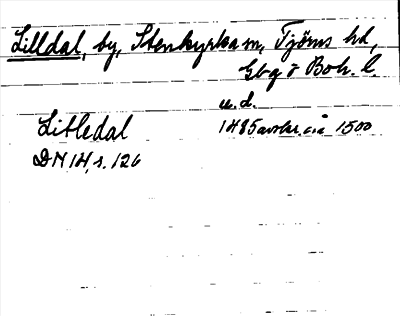 Lilldal, by, Stenkyrka sn, Tjörns hd,
Gbg o Boh. l.
u.d.
Litledal 1485 avskr. c:a 1500
DN 14, s. 126